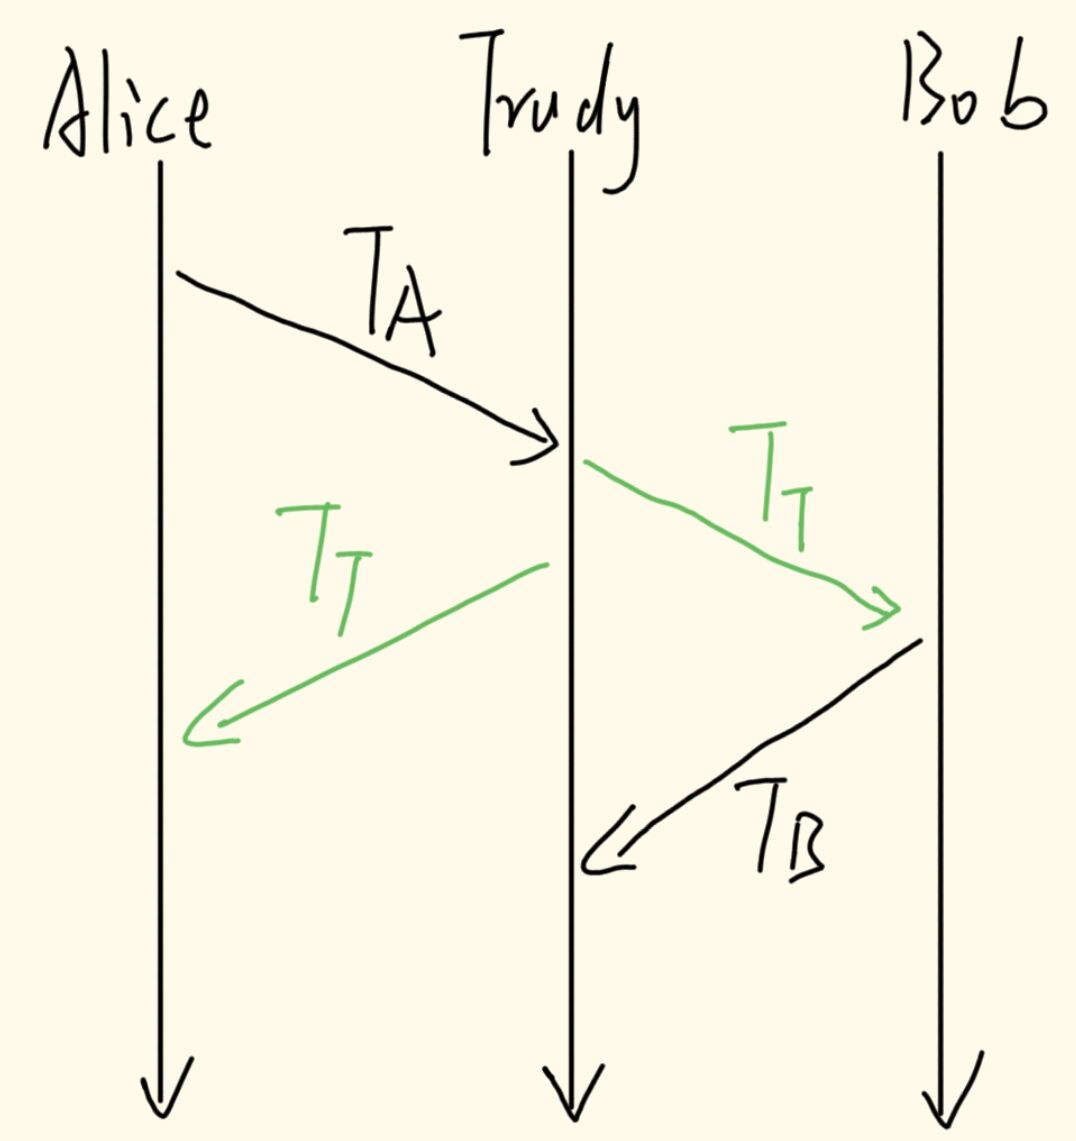 Alice Trudy Bob
TA
TT
TT
TB